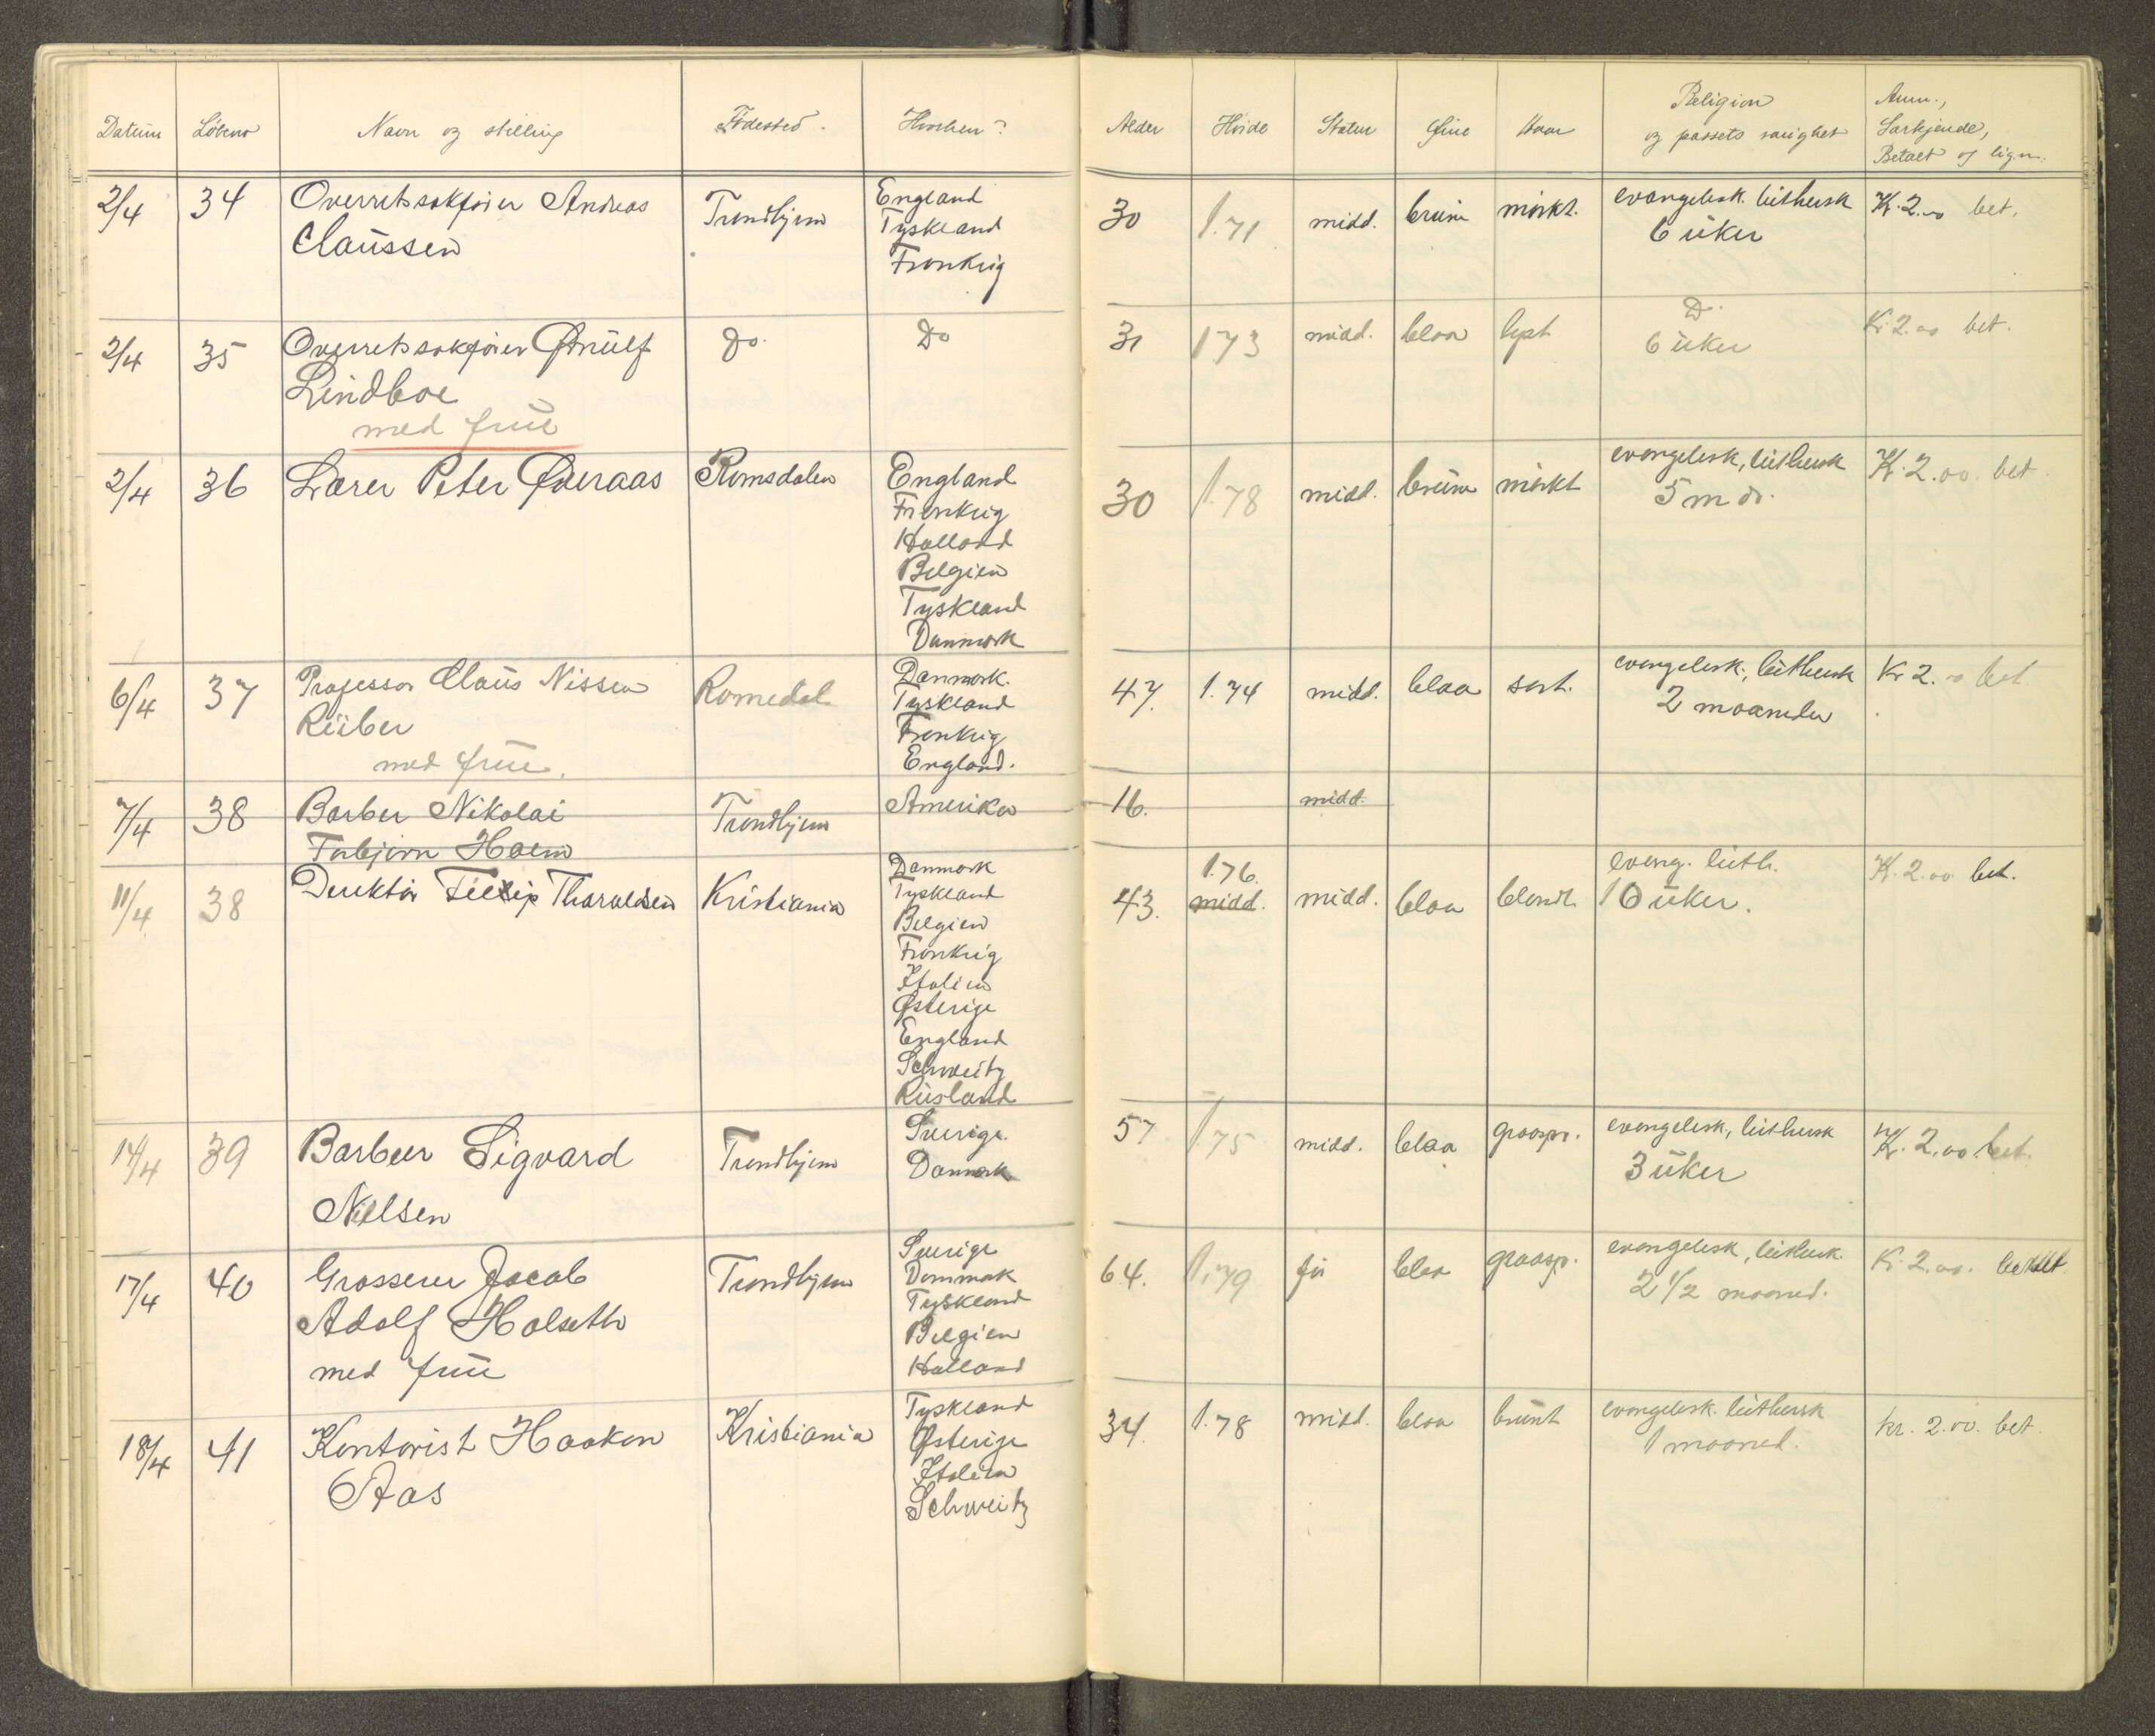 Datum Løbeno Navn og stilling Födested. Hvorhen? Alder Höide Statur Öine Haar Religion og passets varighet Anm., Særkjende, Betalt og lign.
2/4 34 Overretssakförer Andreas Claussen Trondhjem England Tyskland Frankrig 30 1.71 midd. brune mörkt. evangelisk. luthersk 6 uker Kr. 2.00 bet.
2/4 35 Overretssakförer Ørnulf Lindboe med frue Do. Do 31 1 73 midd. blaa lyst Do. 6 uker Kr. 2.00 bet.
2/4 36 Lærer Peter Øveraas Romsdalen England Frankrig Holland Belgien Tyskland Danmark 30 1.78 midd. brune mörkt evangelisk, luthersk 5 mdr. Kr. 2.00. bet
6/4 37 Professor Claus Nissen Riiber med frue. Romedal Danmark. Tyskland Frankrig England. 47. 1.74 midd. blaa sort. evangelisk, luthersk 2 maaneder Kr 2.00 bet
7/4 38 Barber Nikolai Torbjørn Holm Trondhjem Amerika 16. midd.
11/4 38 Direktör Fillip Tharaldsen Kristiania Danmark Tyskland Belgien Frankrig Italien Østerige England Schweitz Rusland 43. 1.76. midd. midd. blaa blondt evang. luth. 10 uker. Kr. 2.00 bet.
14/4 39 Barber Sigvard Nielsen Trondhjem Sverige. Danmark 57 1.75 midd. blaa graaspr. evangelisk, luthersk 3 uker Kr. 2.00. bet.
17/4 40 Grosserer Jacob Adolf Holseth med frue Trondhjem Sverige Danmark Tyskland Belgien Holland 64. 1.79 för blaa graaspr. evangelisk, luthersk. 2 1/2 maaned. Kr. 2.00. betalt.
18/4 41 Kontorist Haakon Aas Kristiania Tyskland Østerige Italien Schweitz 34. 1.78 midd. blaa brunt evangelisk. luthersk 1 maaned. Kr. 2.00. bet.